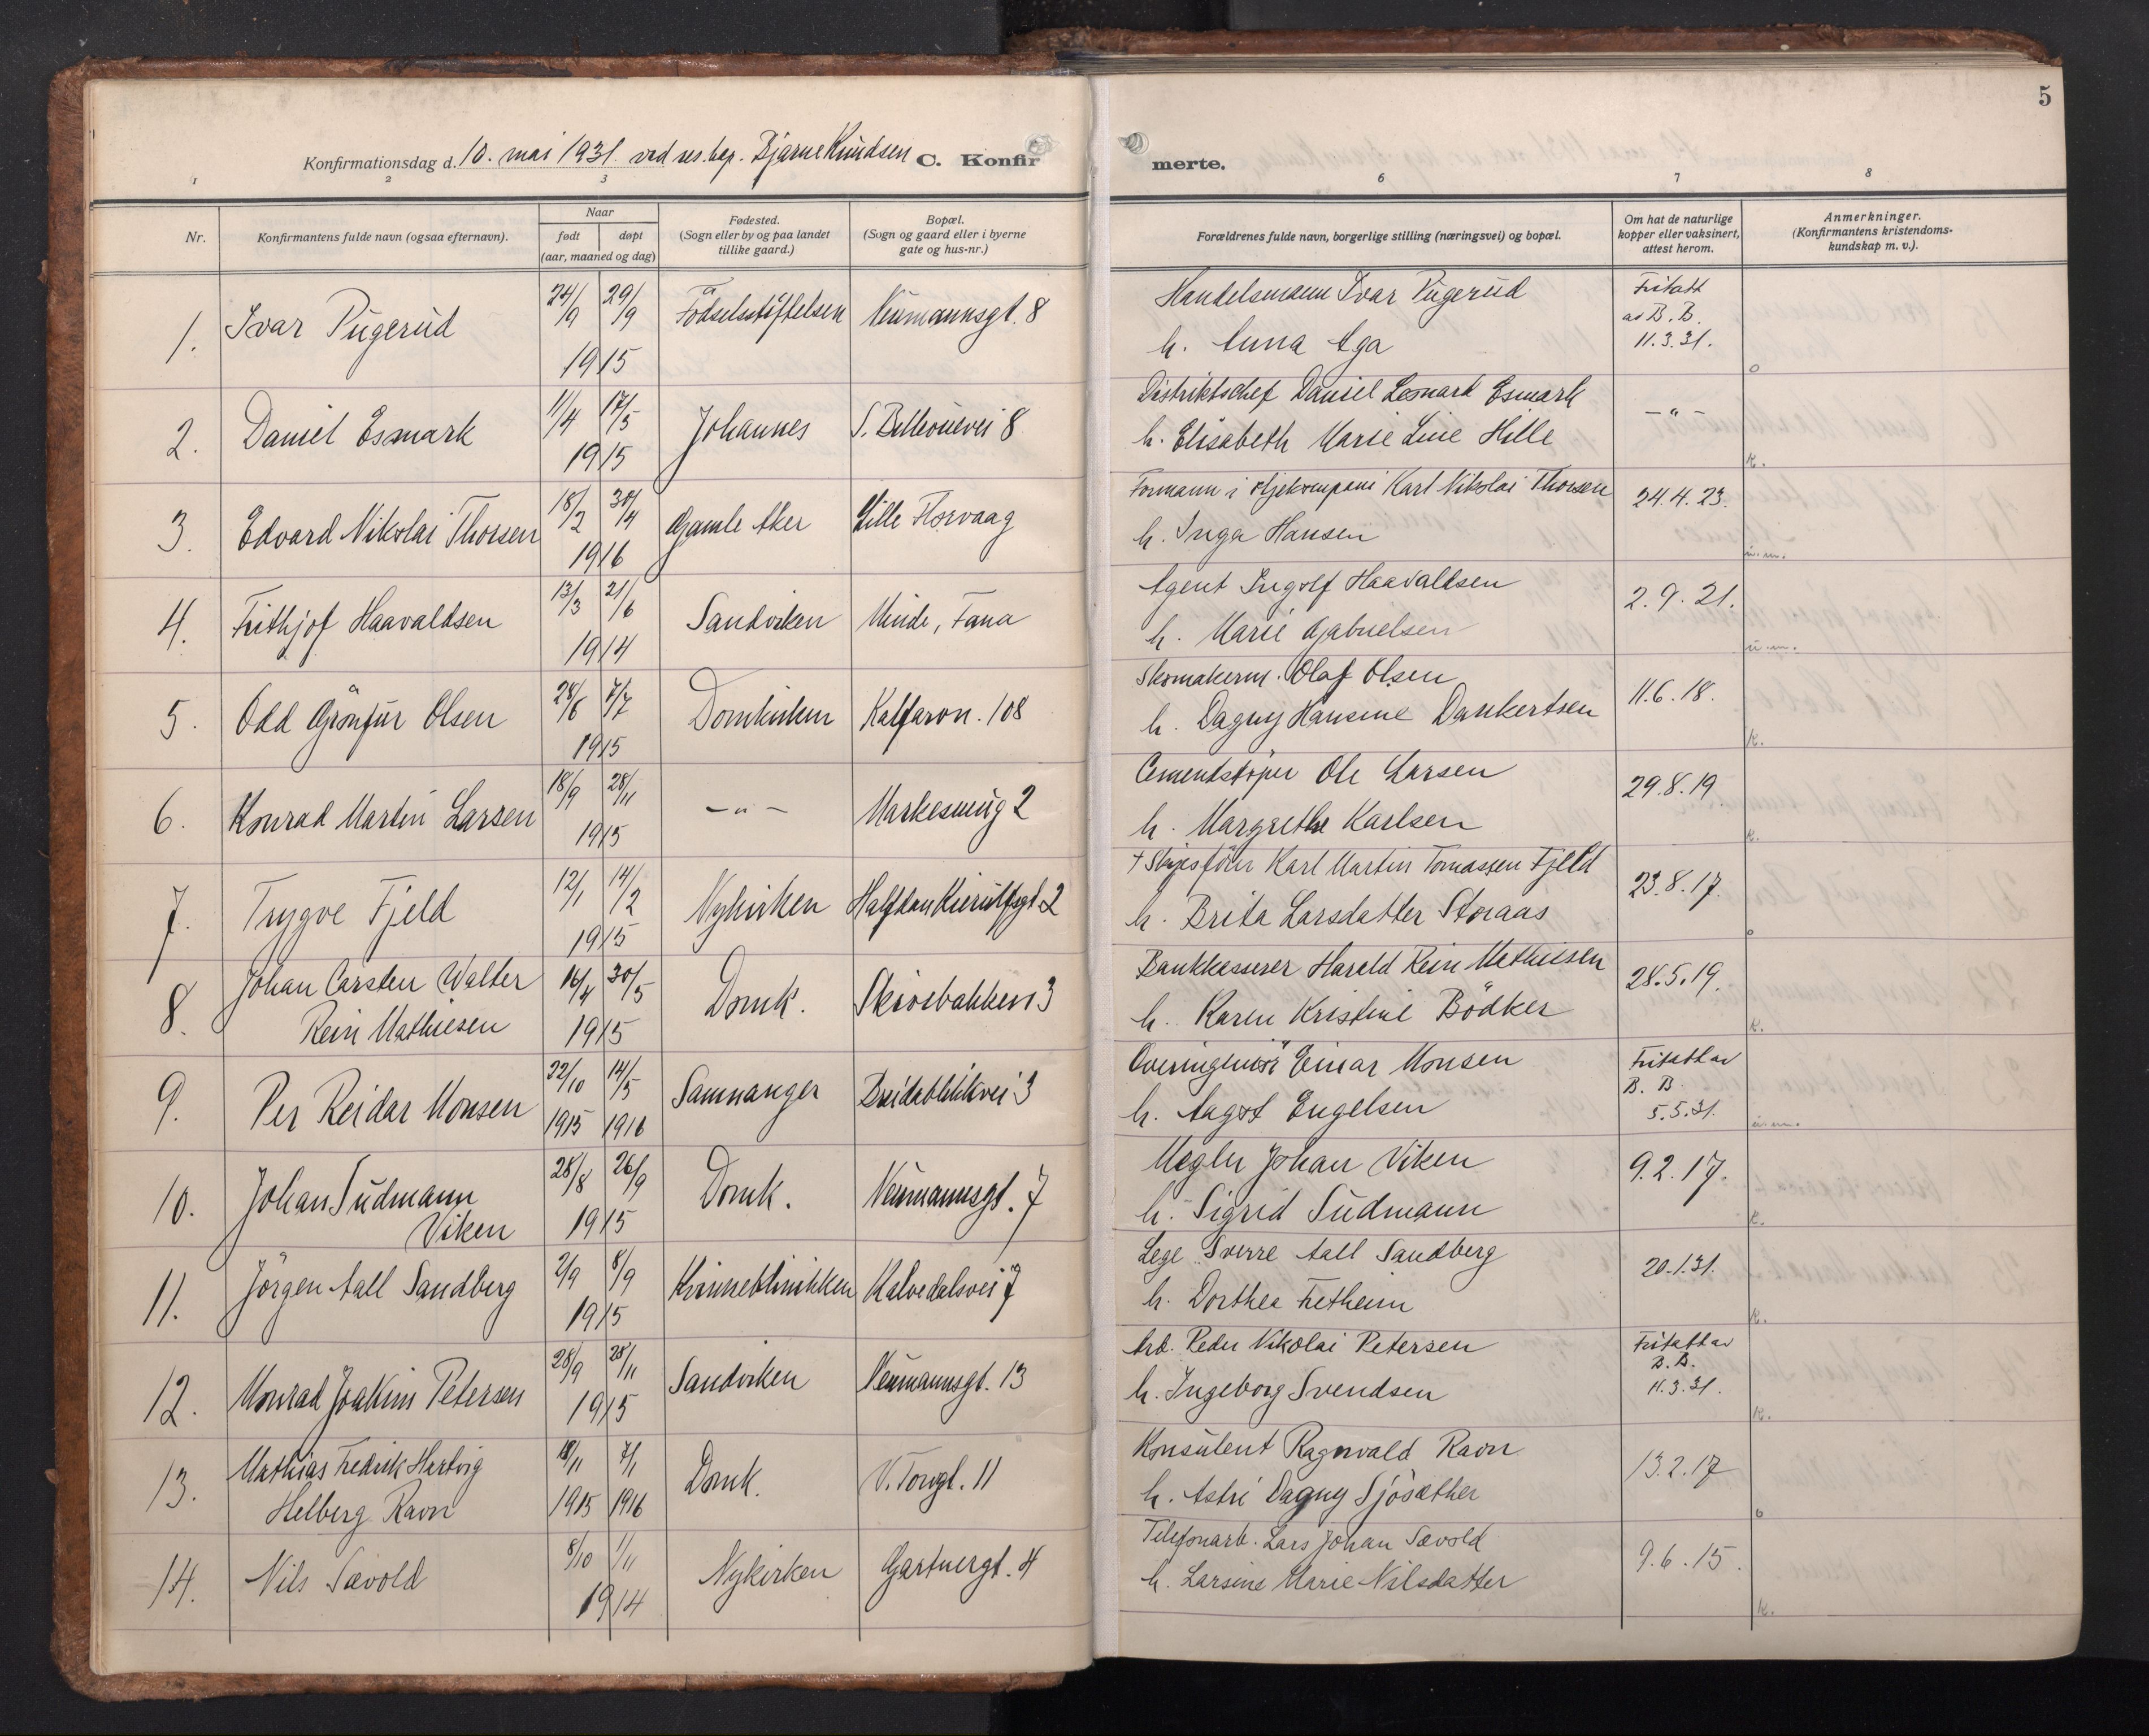 5
Konfirmationsdag d. 10. mai 1931 ved res. kap. Bjarne Knudsen C. Konfir merte.
1 2 3 6 7 8
Nr.
Konfirmantens fulde navn (ogsaa efternavn).
Naar
født døpt
(aar, maaned og dag)
Fødested.
(Sogn eller by og paa landet
tillike gaard.)
Bopæl.
(Sogn og gaard eller i byerne
gate og hus-nr.)
Forældrenes fulde navn, borgerlige stilling (næringsvei) og bopæl.
Om hat de naturlige
kopper eller vaksinert,
attest herom.
Anmerkninger.
(Konfirmantens kristendoms-
kundskap m. v.).
1. Ivar Pugerud 24/9 29/9 1915 Födselsstiftelsen Neumannsgt. 8
Handelsmann Ivar Pugerud
h. Anna Aga
Fritatt
av B. B.
11.3.31.
o
2. Daniel Esmark 11/4 17/5 1915 Johannes S. Bellevuevei 8
Distriktschef Daniel Leonard Esmark
h. Elisabeth Marie Line Hille
– " –
k.
3. Edvard Nikolai Thorsen 18/2 30/4 1916 Gamle Aker Lille Florvaag
Formann i oljekompani Karl Nikolai Thorsen
h. Inga Hansen
24.4.23.
u.m.
4. Frithjof Haavaldsen 13/3 21/6 1914 Sandviken Minde, Fana
Agent Ingolf Haavaldsen
h. Marie Gabrielsen
2.9.21.
u.m.
5. Odd Olsen 28/6 7/7 1915 Domkirken Kalfarvn. 108
Skomakerm. Olaf Olsen
h. Dagny Hansine Dankertsen
11.6.18.
k.
6. Konrad Martin Larsen 18/9 28/11 1915 – " – Markesmug 2
Cementstöper Ole Larsen
h. Margrethe Karlsen
29.8.19.
k.
7. Trygve Fjeld 12/1 14/2 1915 Nykirken Halfdan Kierulfsgt. 2
+ Skipsförer Karl Martin Tomassen Fjeld
h. Brita Larsdatter Storaas
23.8.17.
o
8. Johan Carsten Walter
Rein Mathiesen 16/4 30/5 1915 Domk. Skivebakken 3
Bankkasserer Harald Rein Mathiesen
h. Karen Kristine Bödker
28.5.19.
k.
9. Per Reidar Monsen 22/10 1915 14/5 1916 Samnanger Breidablikkvei 3
Overingeniör Einar Monsen
h. Aagot Engelsen
Fritatt av
B. B.
5.5.31.
u.m.
10. Johan Sudmann
Viken 28/8 26/9 1915 Domk. Neumannsgt. 7
Megler Johan Viken
h. Sigrid Sudmann
9.2.17.
k.
11. Jörgen Aall Sandberg 2/9 8/9 1915 Kvinneklinikken Kalvedalsvei 7
Lege Sverre Aall Sandberg
h. Dorthea Fretheim
20.1.31.
k.
12. Monrad Joakim Petersen 28/9 28/11 1915 Sandviken Neumannsgt. 13
Arb. Peder Nikolai Petersen
h. Ingeborg Svendsen
Fritatt av
B. B.
11.3.31.
k.
13. Mathias Fredrik Hartvig
Helberg Ravn 18/11 1915 7/1 1916 Domk. V. Torvgt. 11
Konsulent Ragnvald Ravn
h. Astri Dagny Sjösæther
13.2.17
o
14. Nils Sævold 8/10 1/11 1914 Nykirken Gartnergt. 4
Telefonarb. Lars Johan Sævold
h. Larsine Marie Nilsdatter
9.6.15.
k.